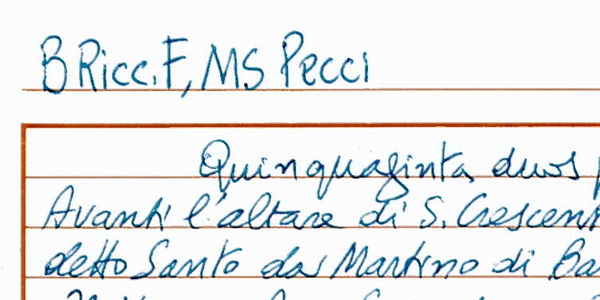 B Ricc. F, MS Pecci
Quinquaginta duos
Avanti l'altare di S. Crescen
detto Santo da Martino di Ba